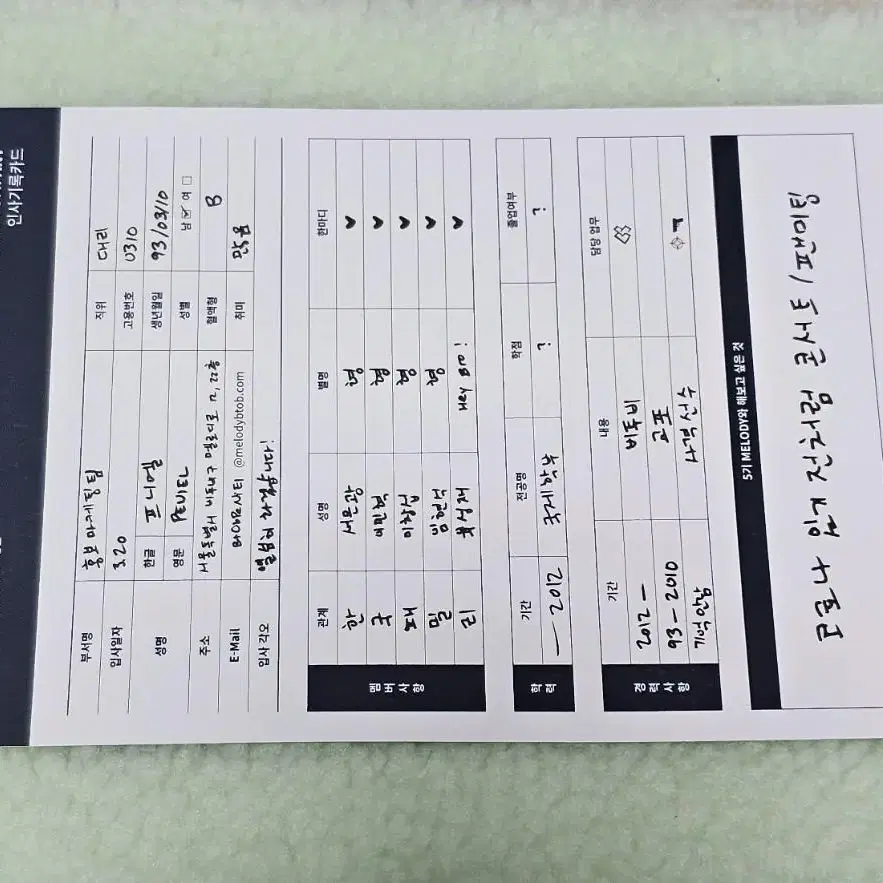 인사기록카드
부서명 홍보 마케팅 팀 직위 대리
입사일자 3.20 고용번호 0310
성명 한글 프니엘 생년월일 93/03/10
영문 PENIEL 성별 남 ☑ 여 □
주소 서울특별시 비투비구 멜로디로 12, 22층 혈액형 B
E-Mail @melodybtob.com 취미 많음
입사 각오 열심히 하겠습니다!
멤버사항
관계 성명 별명 한마디
한 서은광 형 ♥
국 이민혁 형 ♥
패 이창섭 형 ♥
밀 임현식 형 ♥
리 육성재 Hey Bro! ♥
학력
기간 전공명 학점 졸업여부
— 2012 국제학부 ? ?
경력사항
기간 내용 담당 업무
2012 — 비투비
93 - 2010 교포
기억 안남 사격 선수
5기 MELODY와 해보고 싶은 것
코로나 일기 전처럼 콘서트 / 팬미팅